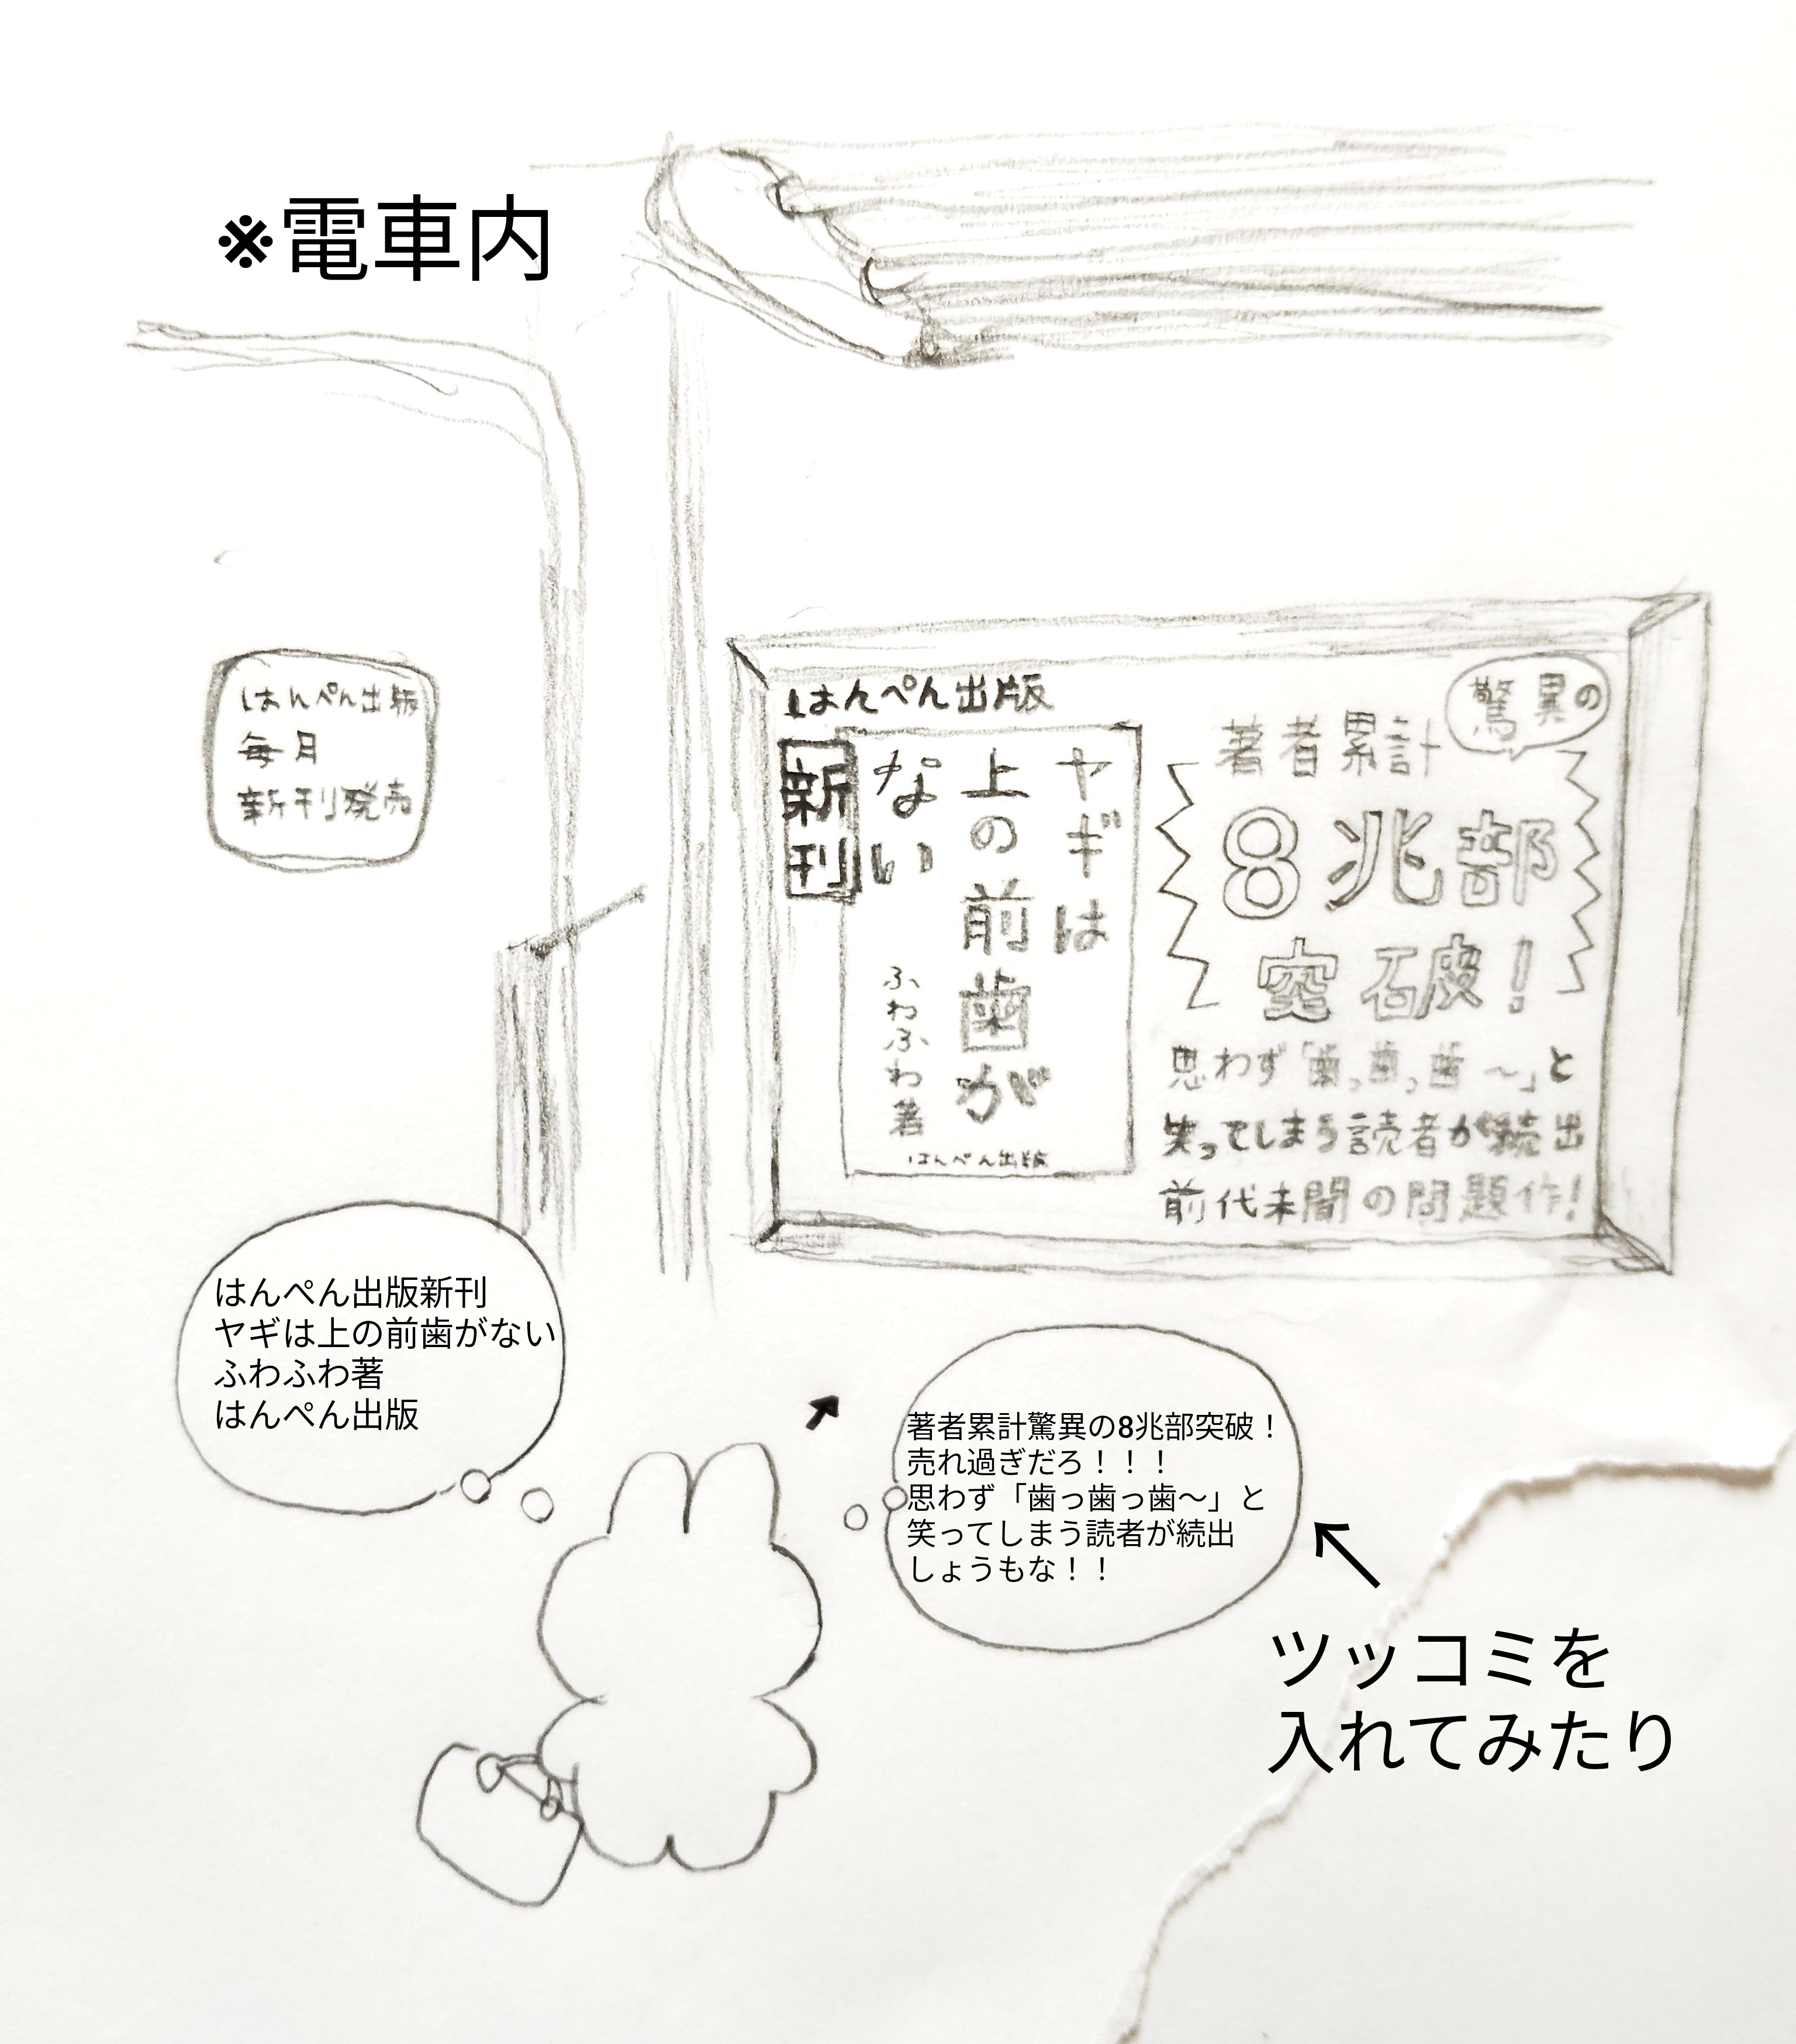 ※電車内
はんぺん出版
毎月
新刊発売
はんぺん出版
新刊
ヤギは
上の前歯が
ない
ふわふわ著
はんぺん出版
驚異の
著者累計
8兆部
突破!
思わず「歯っ歯っ歯〜」と
笑ってしまう読者が続出
前代未聞の問題作!
はんぺん出版新刊
ヤギは上の前歯がない
ふわふわ著
はんぺん出版
著者累計驚異の8兆部突破！
売れ過ぎだろ！！！
思わず「歯っ歯っ歯〜」と
笑ってしまう読者が続出
しょうもな！！
ツッコミを
入れてみたり